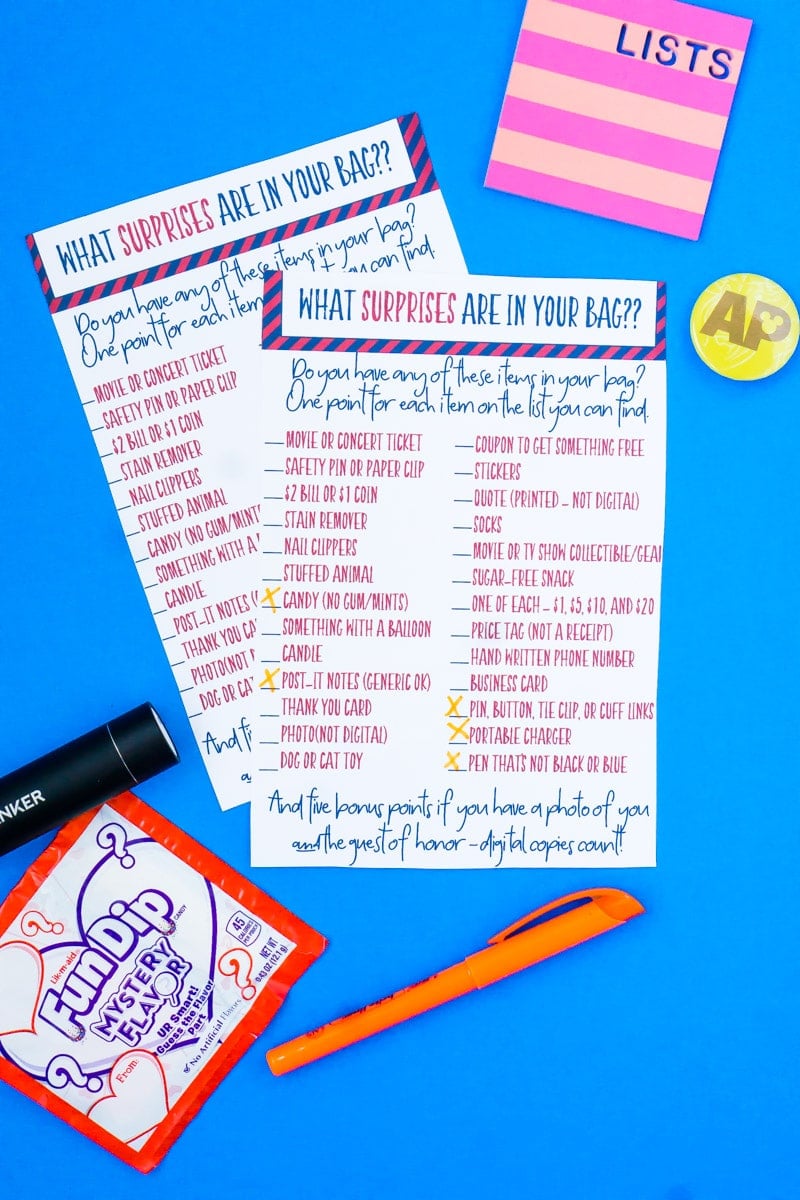 LISTS
WHAT SURPRISES ARE IN YOUR BAG??
Do you have any of these items in your bag?
One point for each item
you can find.
MOVIE OR CONCERT TICKET
SAFETY PIN OR PAPER CLIP
$2 BILL OR $1 COIN
STAIN REMOVER
NAIL CLIPPERS
STUFFED ANIMAL
CANDY (NO GUM/MINTS
SOMETHING WITH A
CANDLE
POST-IT NOTES (
THANK YOU CA
PHOTO(NOT
DOG OR CAT
And five
AP
WHAT SURPRISES ARE IN YOUR BAG??
Do you have any of these items in your bag?
One point for each item on the list you can find.
MOVIE OR CONCERT TICKET
SAFETY PIN OR PAPER CLIP
$2 BILL OR $1 COIN
STAIN REMOVER
NAIL CLIPPERS
STUFFED ANIMAL
X CANDY (NO GUM/MINTS)
SOMETHING WITH A BALLOON
CANDLE
X POST-IT NOTES (GENERIC OK)
THANK YOU CARD
PHOTO(NOT DIGITAL)
DOG OR CAT TOY
COUPON TO GET SOMETHING FREE
STICKERS
QUOTE (PRINTED - NOT DIGITAL)
SOCKS
MOVIE OR TV SHOW COLLECTIBLE/GEAR
SUGAR-FREE SNACK
ONE OF EACH - $1, $5, $10, AND $20
PRICE TAG (NOT A RECEIPT)
HAND WRITTEN PHONE NUMBER
BUSINESS CARD
X PIN, BUTTON, TIE CLIP, OR CUFF LINKS
X PORTABLE CHARGER
X PEN THAT'S NOT BLACK OR BLUE
And five bonus points if you have a photo of you
and the guest of honor - digital copies count!
NKER
Lik-m-aid
Fun Dip
CANDY
MYSTERY
FLAVOR
UR Smart!
Guess the Flavor
part
No Artificial Flavors
45
CALORIES
PER POUCH
NET WT
0.43 OZ (12.1g)
From: